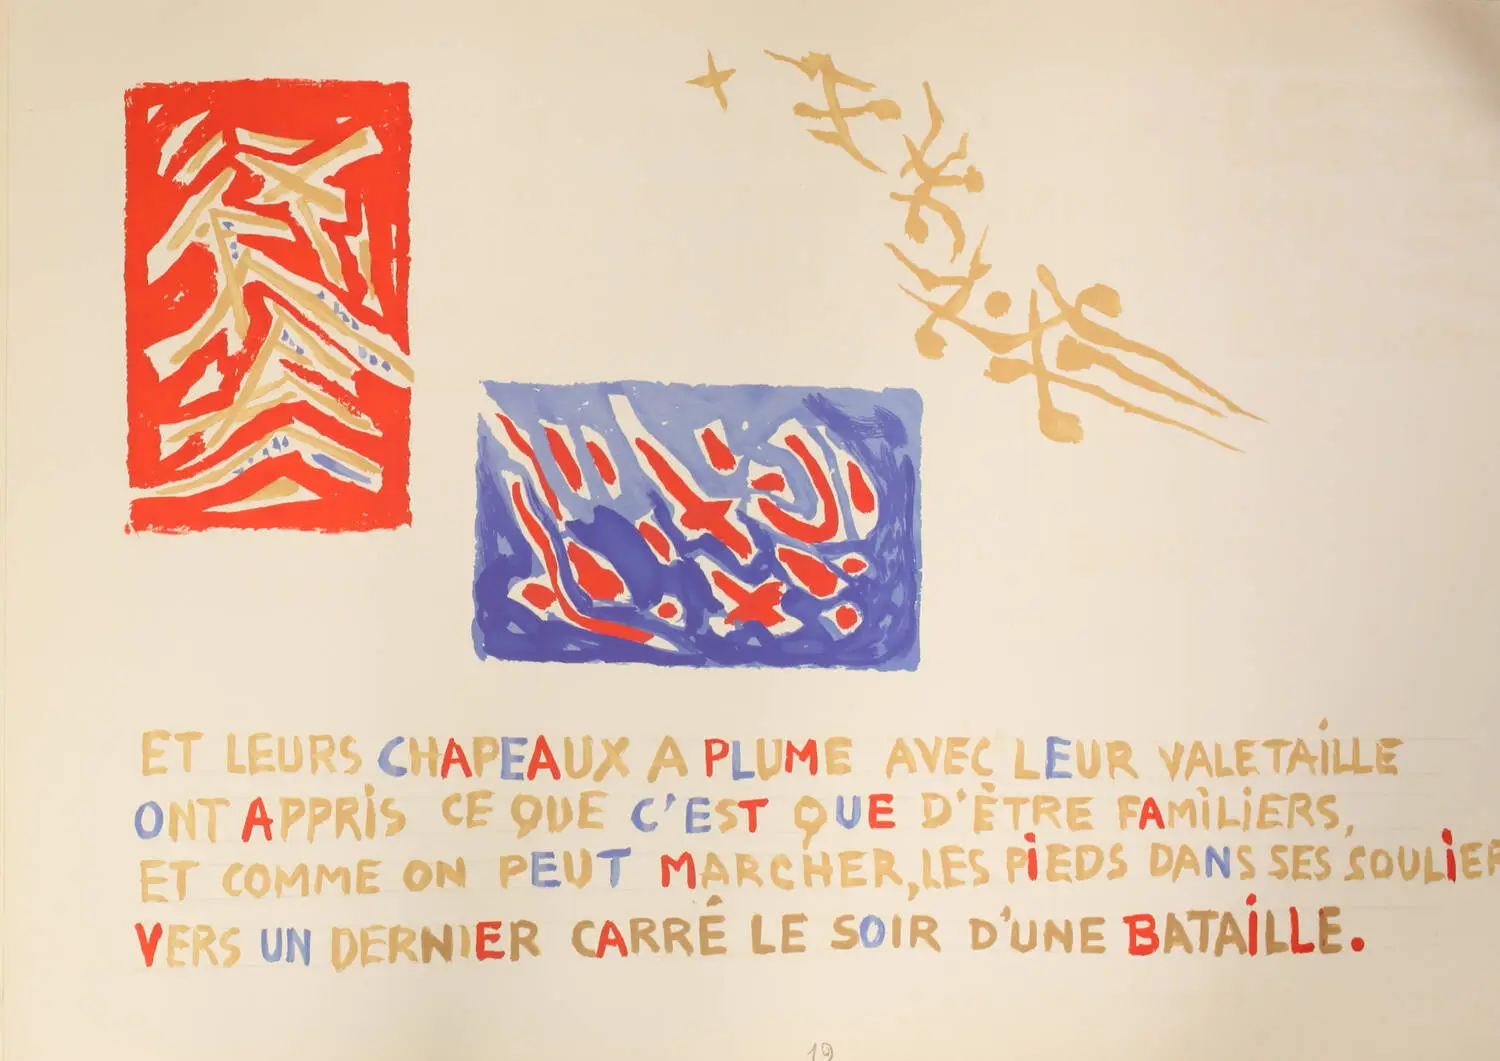 ET LEURS CHAPEAUX A PLUME AVEC LEUR VALETAILLE
ONT APPRIS CE QUE C'EST QUE D'ÊTRE FAMILIERS,
ET COMME ON PEUT MARCHER, LES PIEDS DANS SES SOULIER
VERS UN DERNIER CARRÉ LE SOIR D'UNE BATAILLE.
19